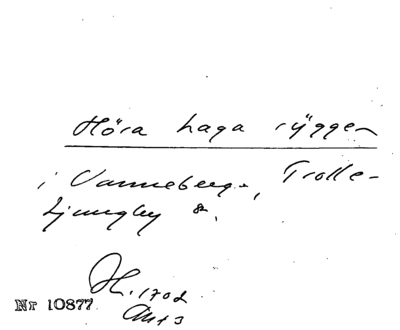 Höra haga ryggen
i Vanneberga, Trolle-
Ljungby s.
H. 1702
Nr 10877